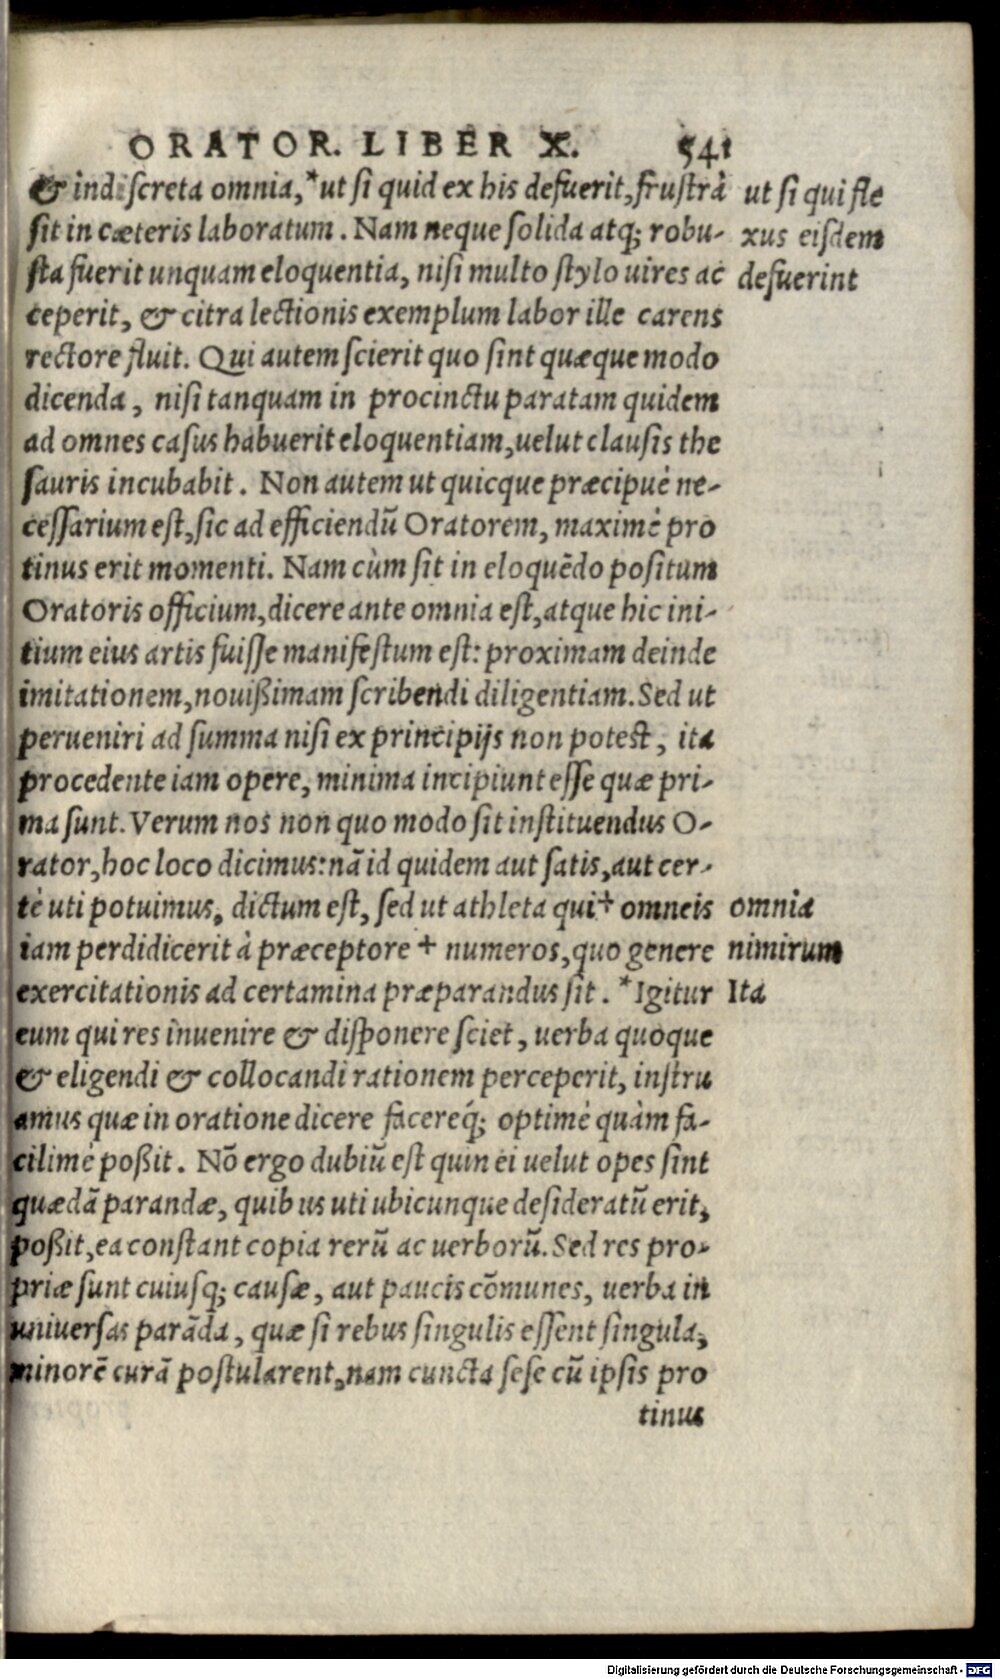 ORATOR. LIBER X. 541
& indiscreta omnia,*ut si quid ex his defuerit,frustrà
sit in cæteris laboratum. Nam neque solida atq; robu-
sta fuerit unquam eloquentia, nisi multo stylo uires ac
ceperit, & citra lectionis exemplum labor ille carens
rectore fluit. Qui autem scierit quo sint quæque modo
dicenda, nisi tanquam in procinctu paratam quidem
ad omnes casus habuerit eloquentiam,uelut clausis the
sauris incubabit. Non autem ut quicque præcipuè ne-
cessarium est,sic ad efficiendũ Oratorem, maximè pro
tinus erit momenti. Nam cùm sit in eloquẽdo positum
Oratoris officium,dicere ante omnia est,atque hic ini-
tium eius artis fuisse manifestum est: proximam deinde
imitationem,nouißimam scribendi diligentiam.Sed ut
perueniri ad summa nisi ex principijs non potest, ita
procedente iam opere, minima incipiunt esse quæ pri-
ma sunt. Verum nos non quo modo sit instituendus O-
rator,hoc loco dicimus:nã id quidem aut satis,aut cer-
tè uti potuimus, dictum est, sed ut athleta qui+ omneis
iam perdidicerit à præceptore + numeros,quo genere
exercitationis ad certamina præparandus sit. *Igitur
eum qui res inuenire & disponere sciet, uerba quoque
& eligendi & collocandi rationem perceperit, instru
amus quæ in oratione dicere facereq́; optimè quàm fa-
cilimè poßit. Nõ ergo dubiũ est quin ei uelut opes sint
quædã parandæ, quibus uti ubicunque desideratũ erit,
poßit,ea constant copia rerũ ac uerborũ.Sed res pro-
priæ sunt cuiusq; causæ, aut paucis cõmunes, uerba in
uniuersas parãda, quæ si rebus singulis essent singula,
minorẽ curã postularent,nam cuncta sese cũ ipsis pro
tinus
ut si qui fle
xus eisdem
defuerint
omnia
nimirum
Ita
Digitalisierung gefördert durch die Deutsche Forschungsgemeinschaft - DFG